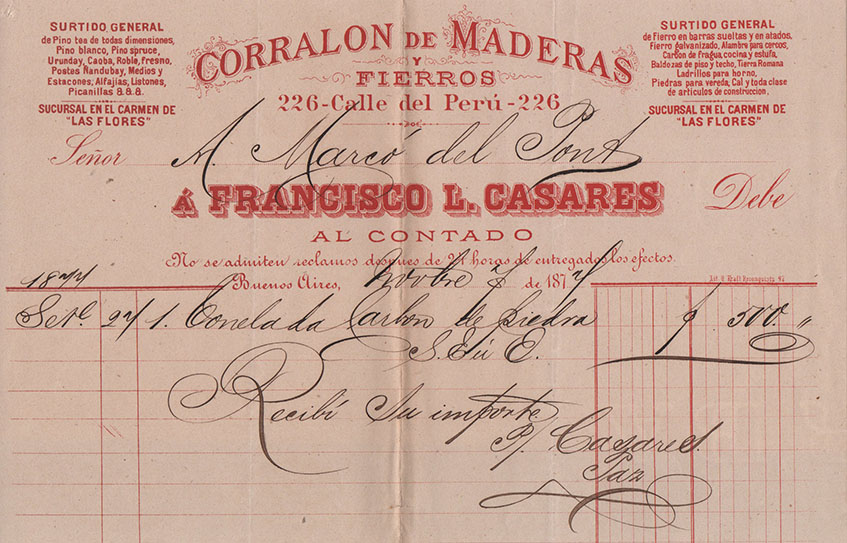 SURTIDO GENERAL
de Pino tea de todas dimensiones,
Pino blanco, Pino spruce,
Urunday, Caoba, Roble, Fresno,
Postes Ñandubay, Medios y
Estacones, Alfajias, Listones,
Picanillas &.&.&.
SUCURSAL EN EL CARMEN DE
"LAS FLORES"
CORRALON DE MADERAS
Y
FIERROS
226-Calle del Perú-226
SURTIDO GENERAL
de Fierro en barras sueltas y en atados.
Fierro galvanizado, Alambre para cercos,
Carbon de fragua, cocina y estufa,
Baldozas de piso y techo, Tierra Romana
Ladrillos para horno,
Piedras para vereda, Cal y toda clase
de articulos de construccion.
SUCURSAL EN EL CARMEN DE
"LAS FLORES"
Señor A. Marcó del Pont
Á FRANCISCO L. CASARES Debe
AL CONTADO
No se admiten reclamos despues de 24 horas de entregados los efectos.
Buenos Aires, de 187
1. Tonelada Carbon de Piedra $ 500 "
S. E. ú E.
Recibí su importe
P/ Casares
Paz